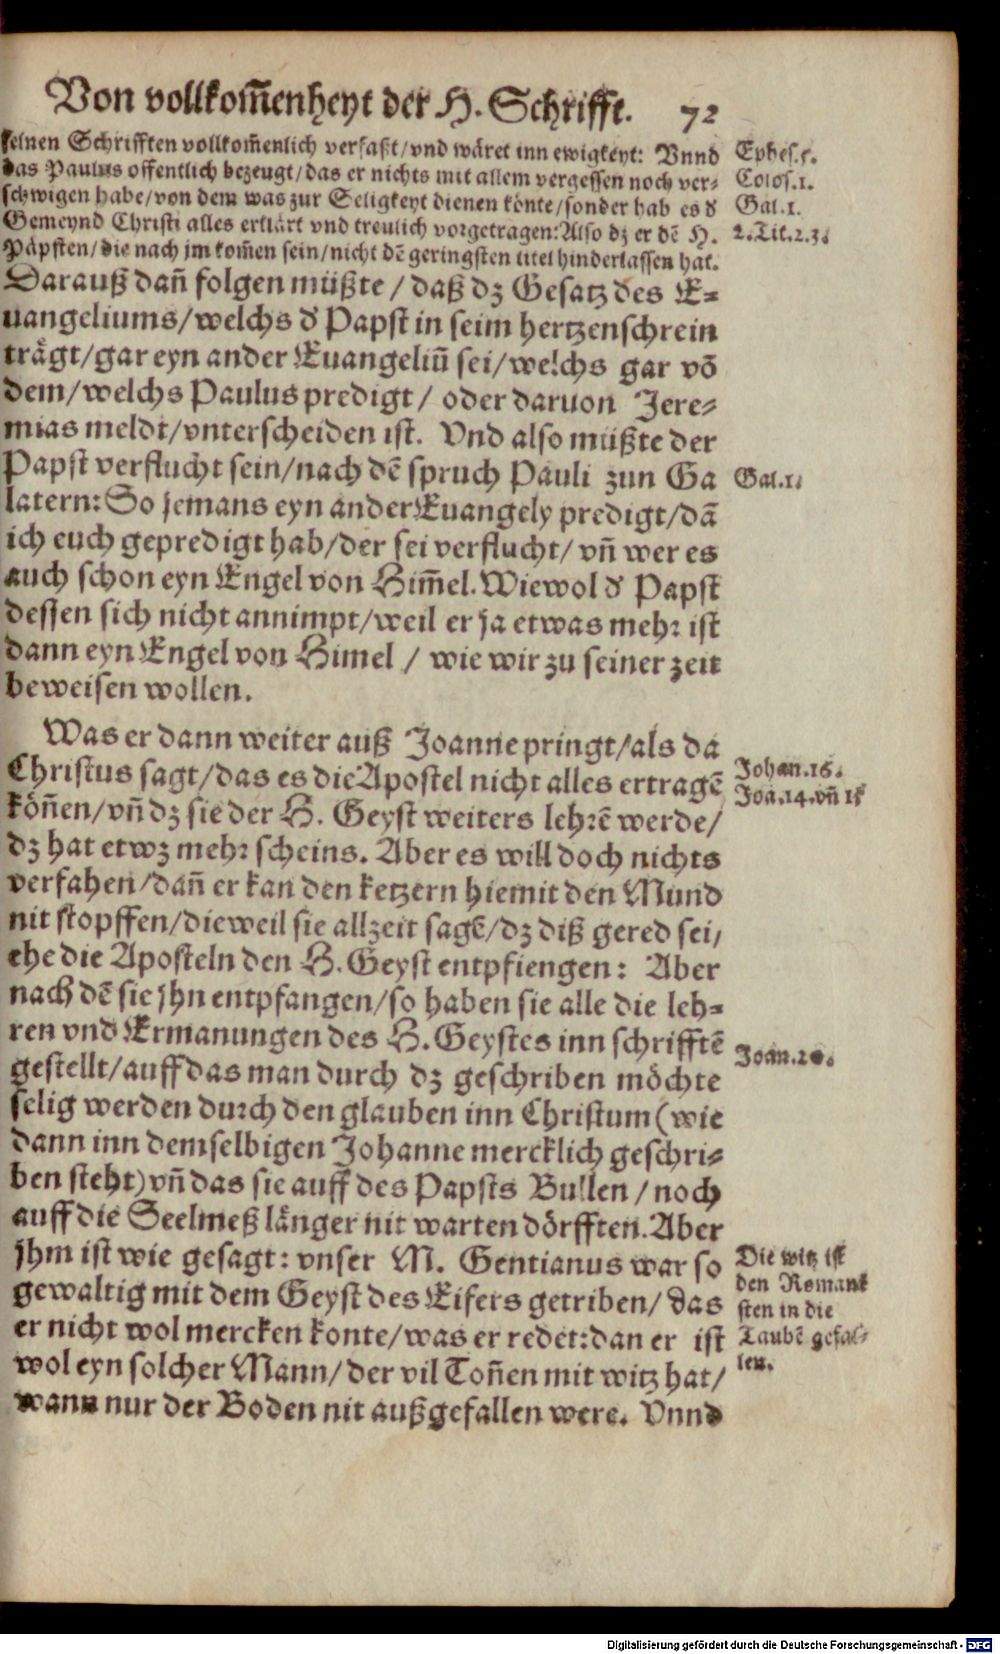 Von vollkom̃enheyt der H. Schrifft. 72
seinen Schrifften vollkom̃enlich verfaßt/vnd wäret inn ewigkeyt: Vnnd
das Paulus offentlich bezeugt/das er nichts mit allem vergessen noch ver⸗
schwigen habe/von dem was zur Seligkeyt dienen könte/sonder hab es d̕
Gemeynd Christi alles erklärt vnd treulich vorgetragen: Also dz er dē H.
Päpsten/die nach jm kom̃en sein/nicht dē geringsten titel hinderlassen hat.
Ephes.5.
Colos.1.
Gal.1.
2.Tit.2.3.
Darauß dañ folgen müßte / daß dz Gesatz des E⸗
uangeliums/welchs d̕ Papst in seim hertzenschrein
trägt/gar eyn ander Euangeliū sei/welchs gar vō
dem/welchs Paulus predigt / oder daruon Jere⸗
mias meldt/vnterscheiden ist. Vnd also müßte der
Papst verflucht sein/nach dē spruch Pauli zun Ga
latern: So jemans eyn ander Euangely predigt/dā
ich euch gepredigt hab/der sei verflucht/ vñ wer es
auch schon eyn Engel von Him̃el. Wiewol d̕ Papst
dessen sich nicht annimpt/weil er ja etwas mehr ist
dann eyn Engel von Himel / wie wir zu seiner zeit
beweisen wollen.
Gal.1.
Was er dann weiter auß Joanne pringt/als da
Christus sagt/das es die Apostel nicht alles ertragē
köñen/vñ dz sie der H. Geyst weiters lehrē werde/
dz hat etwz mehr scheins. Aber es will doch nichts
verfahen/dañ er kan den ketzern hiemit den Mund
nit stopffen/dieweil sie allzeit sagē/dz diß gered sei/
ehe die Aposteln den H. Geyst entpfiengen: Aber
nach dē sie jhn entpfangen/so haben sie alle die leh⸗
ren vnd Ermanungen des H. Geystes inn schrifftē
gestellt/auff das man durch dz geschriben möchte
selig werden durch den glauben inn Christum (wie
dann inn demselbigen Johanne mercklich geschri⸗
ben steht) vñ das sie auff des Papsts Bullen / noch
auff die Seelmeß länger nit warten dörfften. Aber
jhm ist wie gesagt: vnser M. Gentianus war so
gewaltig mit dem Geyst des Eifers getriben/ das
er nicht wol mercken konte/was er redet: dan er ist
wol eyn solcher Mann/der vil Toñen mit witz hat/
wann nur der Boden nit außgefallen were. Vnnd
Johan.16.
Joā.14.vñ 15
Joan.20.
Die witz ist
den Romani
sten in die
Taubē gefal⸗
len.
Digitalisierung gefördert durch die Deutsche Forschungsgemeinschaft - DFG